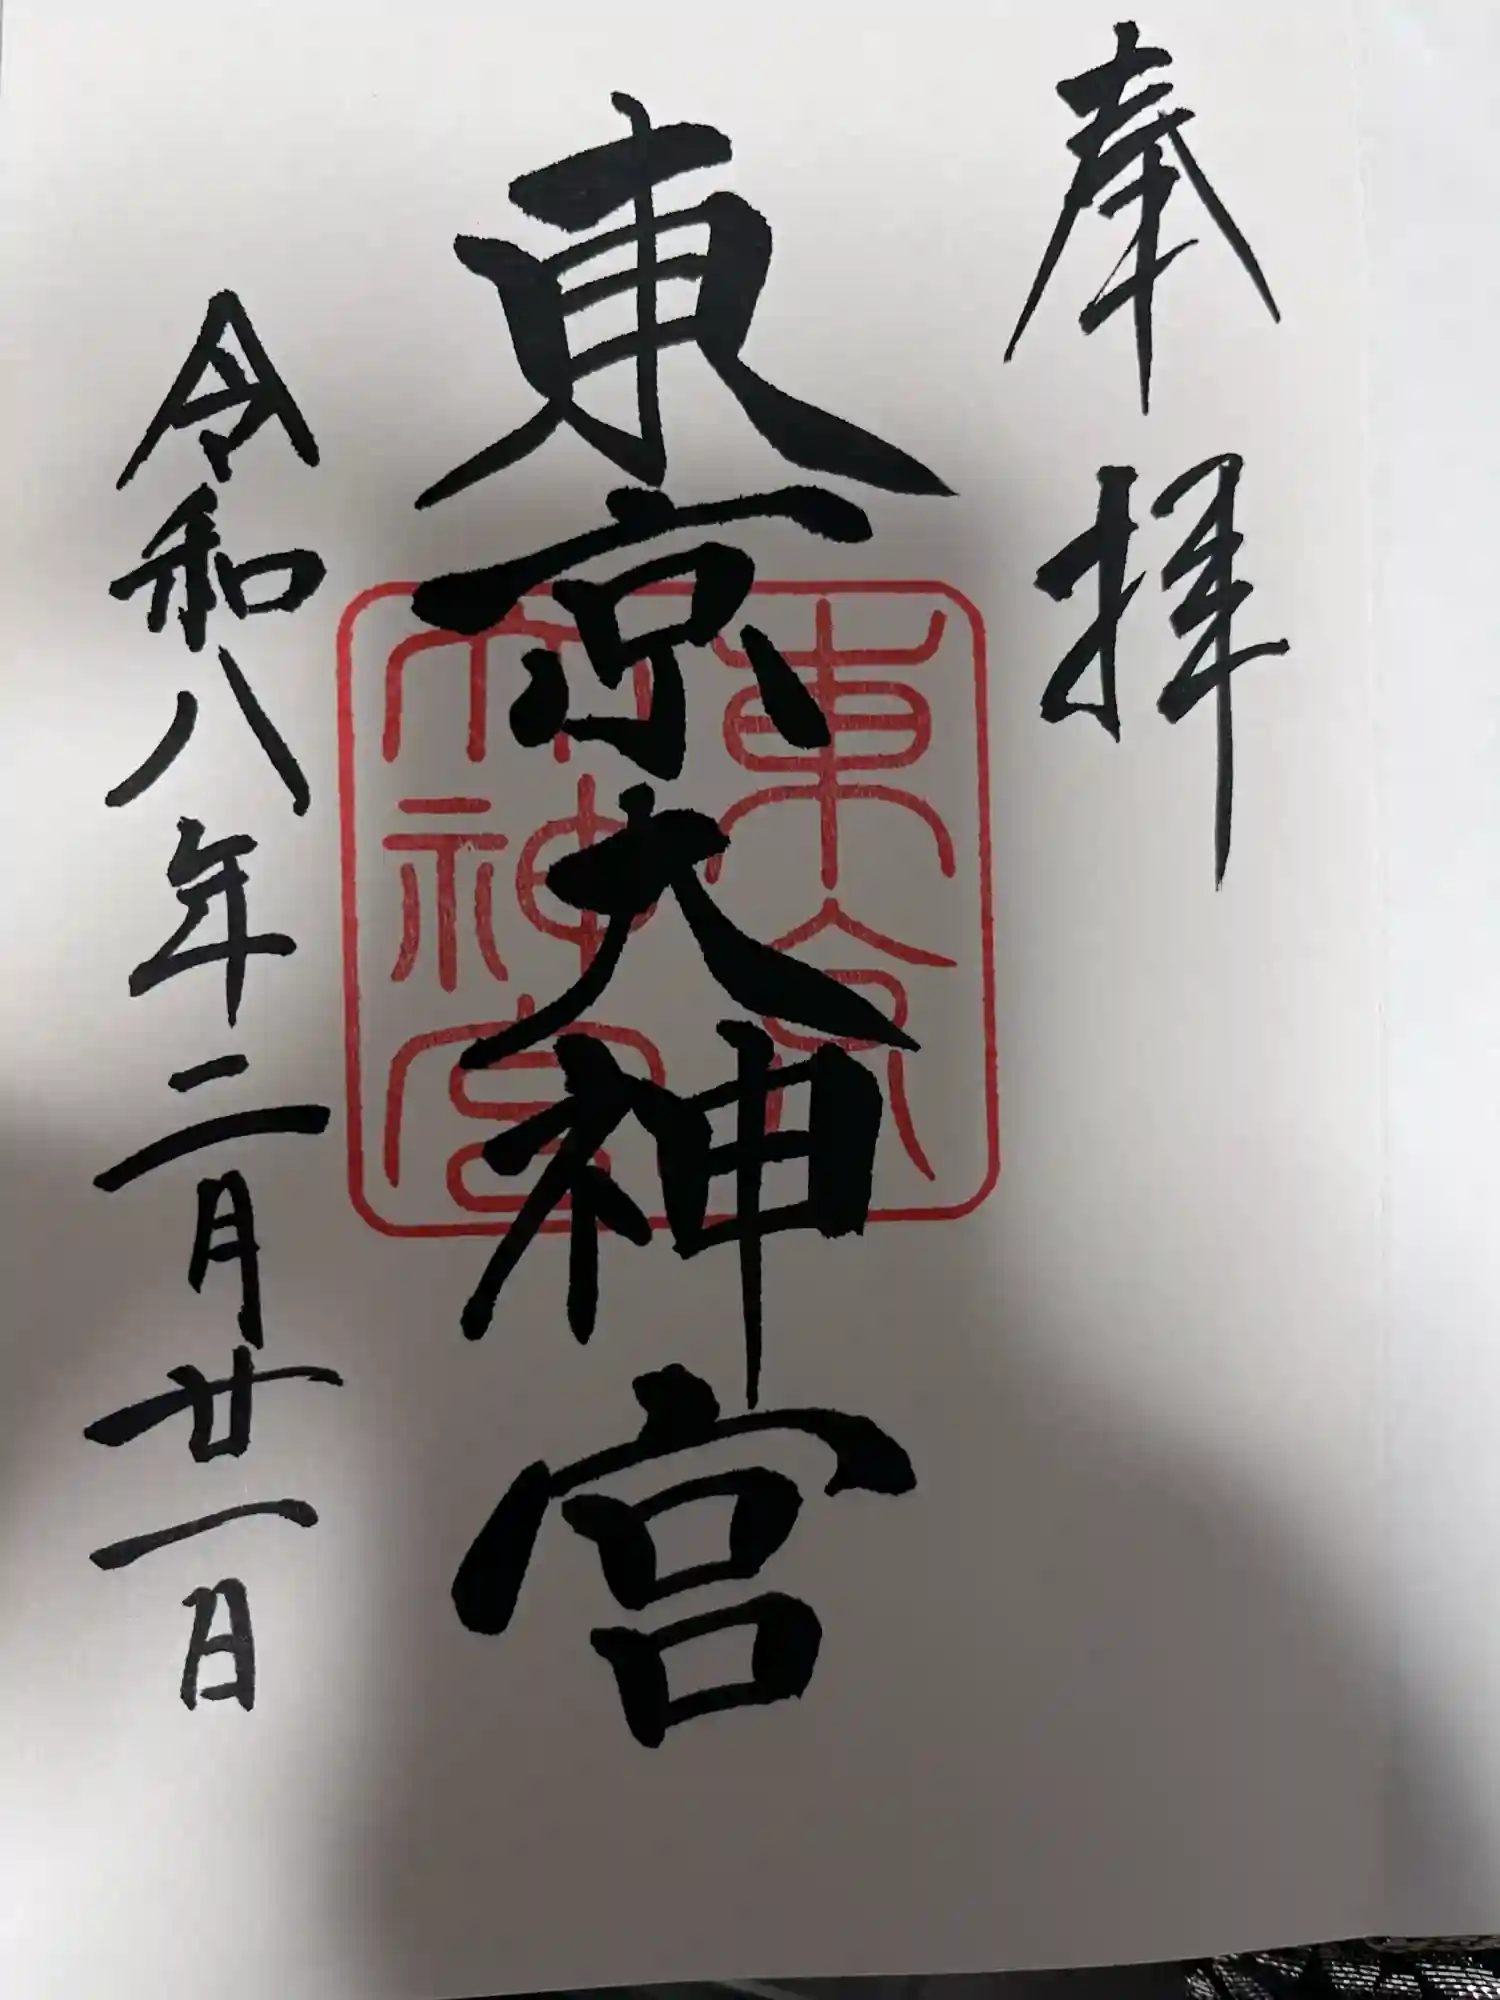 奉拝
東京大神宮
東京大神宮
令和八年二月廿一日